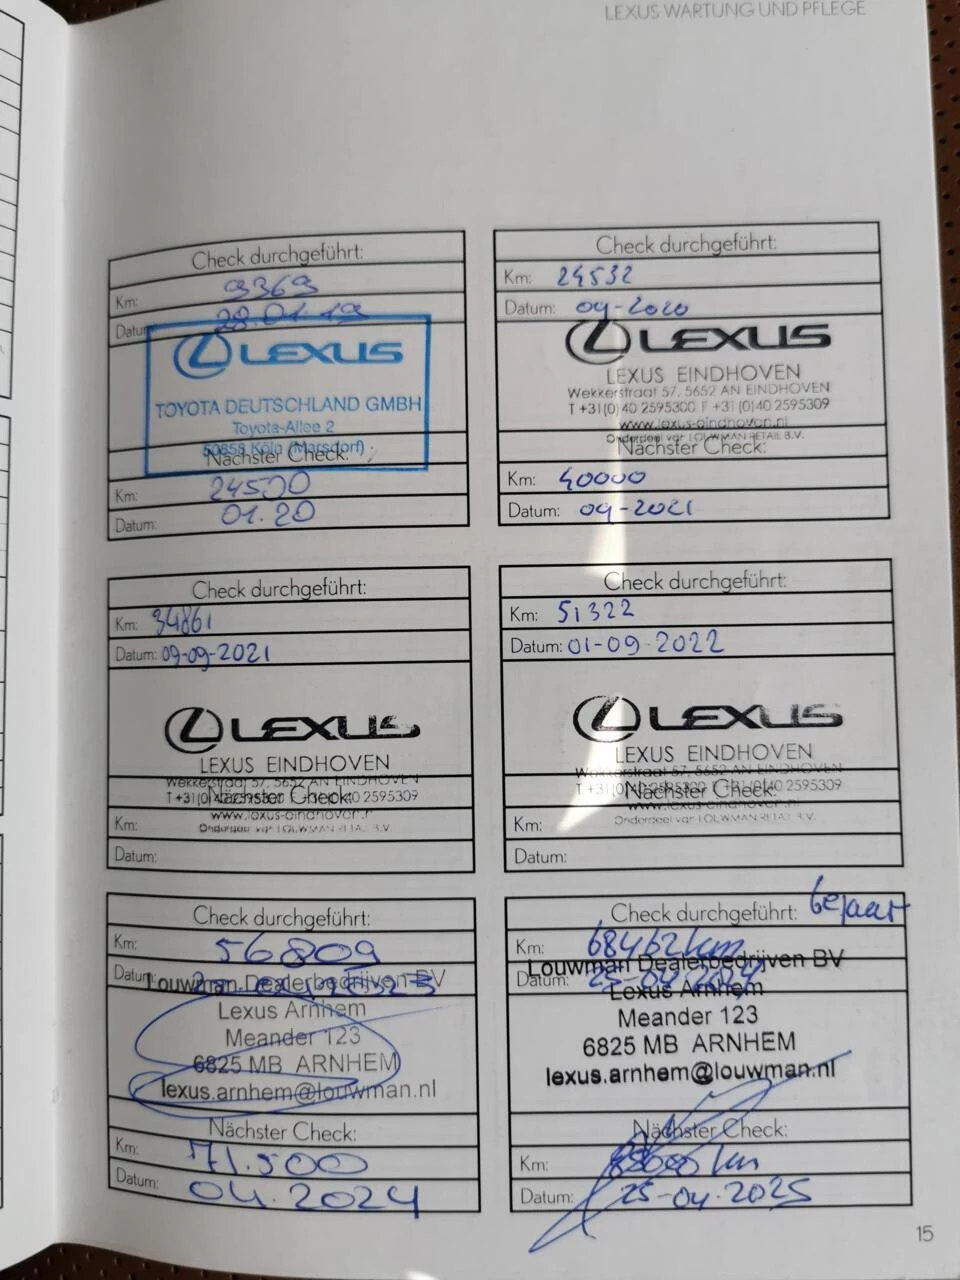 LEXUS WARTUNG UND PFLEGE
Check durchgeführt:
Km: 9369
Datum: 28.01.19
LEXUS
TOYOTA DEUTSCHLAND GMBH
Toyota-Allee 2
50858 Köln (Marsdorf)
Nächster Check:
Km: 24500
Datum: 01.20
Check durchgeführt:
Km: 24532
Datum: 09-2020
LEXUS
LEXUS EINDHOVEN
Wekkerstraat 57, 5652 AN EINDHOVEN
T +31(0)40 2595300 F +31(0)40 2595309
www.lexus-eindhoven.nl
Onderdeel van LOUWMAN RETAIL B.V.
Nächster Check:
Km: 40000
Datum: 09-2021
Check durchgeführt:
Km: 34861
Datum: 09-09-2021
LEXUS
LEXUS EINDHOVEN
Wekkerstraat 57, 5652 AN EINDHOVEN
T +31(0)40 2595300 F +31(0)40 2595309
Nächster Check:
www.lexus-eindhoven.nl
Km:
Onderdeel van LOUWMAN RETAIL B.V.
Datum:
Check durchgeführt:
Km: 51322
Datum: 01-09-2022
LEXUS
LEXUS EINDHOVEN
Wekkerstraat 57, 5652 AN EINDHOVEN
T +31(0)40 2595300 F +31(0)40 2595309
Nächster Check:
www.lexus-eindhoven.nl
Km:
Onderdeel van LOUWMAN RETAIL B.V.
Datum:
Check durchgeführt:
Km: 56809
Datum:
Louwman Dealerbedrijven BV
Lexus Arnhem
Meander 123
6825 MB ARNHEM
lexus.arnhem@louwman.nl
Nächster Check:
Km: 71.500
Datum: 04.2024
Check durchgeführt:
Km: 68462 km
Datum: 25-04-2024
Louwman Dealerbedrijven BV
Lexus Arnhem
Meander 123
6825 MB ARNHEM
lexus.arnhem@louwman.nl
Nächster Check:
Km:
Datum: 25-04-2025
15